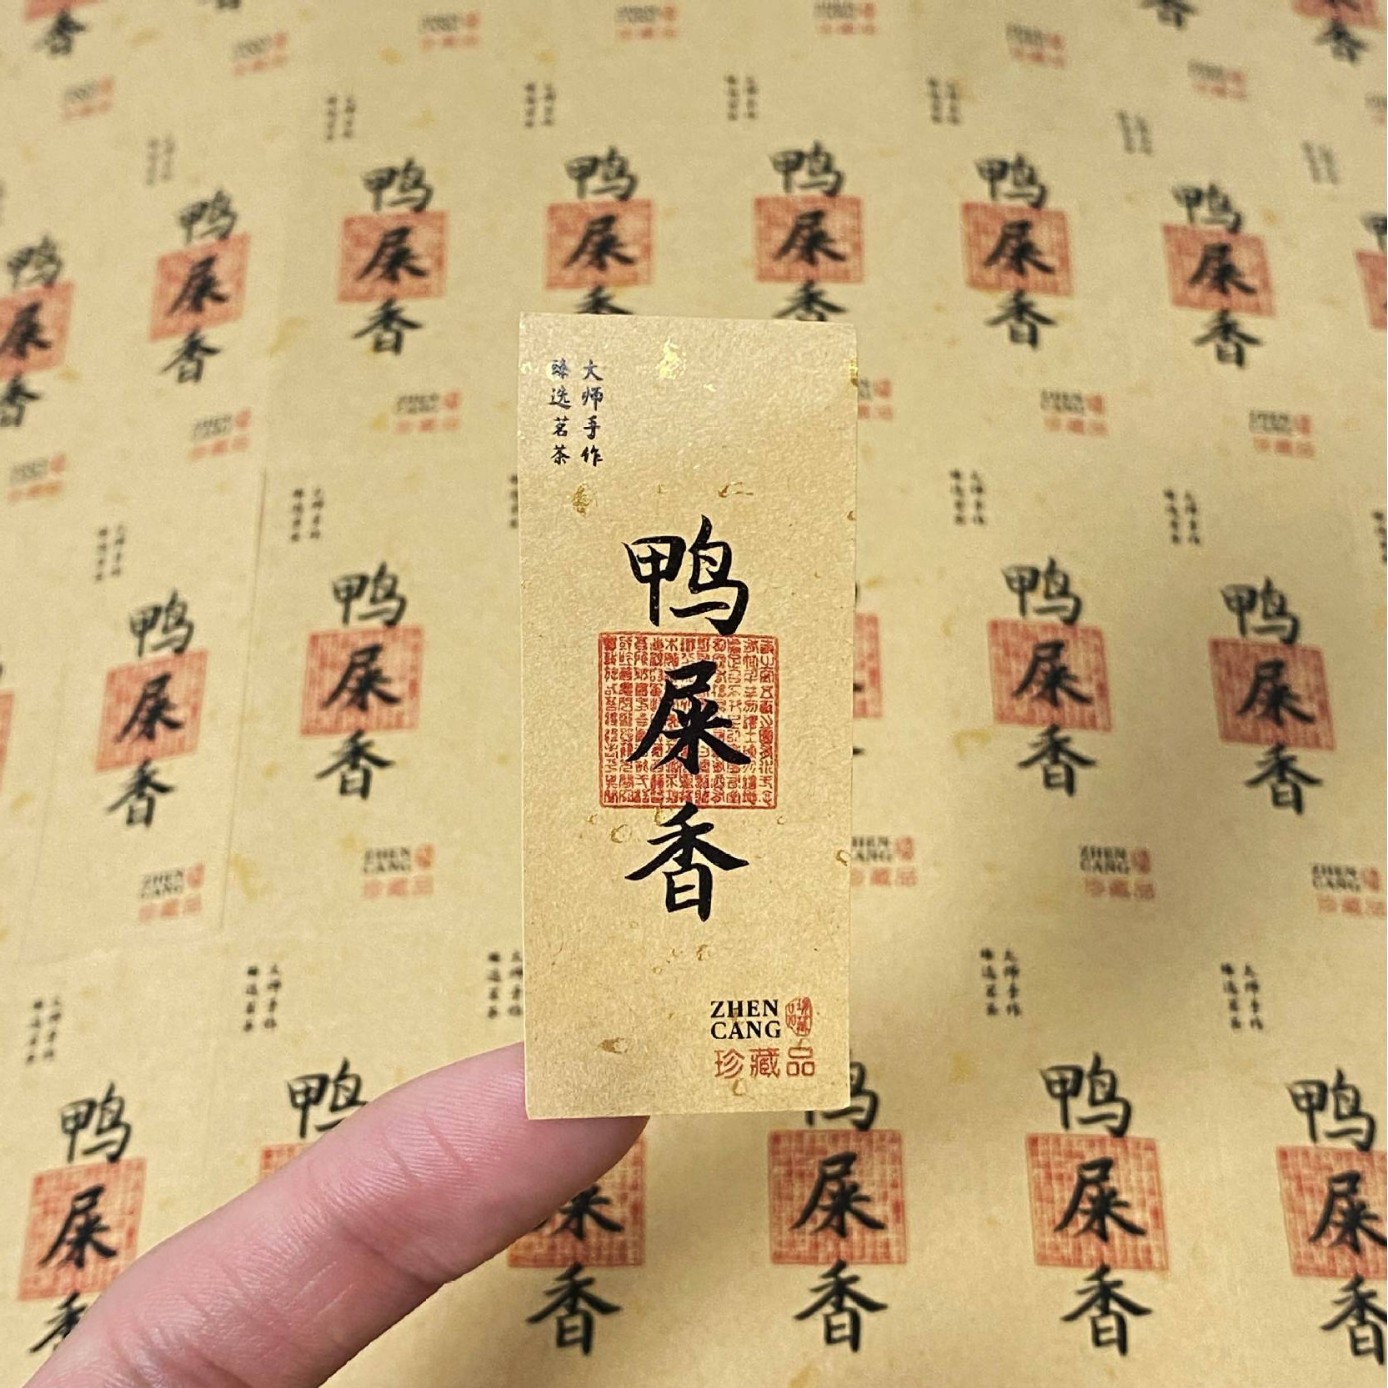 大师手作
臻选茗茶
鸭
屎
香
ZHEN
CANG
珍藏品